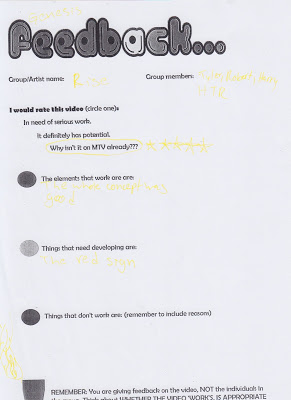 Feedback...
Group/Artist name: Rose
Group members:
I would rate this video (circle one):
In need of serious work.
It definitely has potential.
Why isn't it on MTV already???
The elements that work are are:
The whole concept was
good
Things that need developing are:
The red sign
Things that don't work are: (remember to include reasons)
REMEMBER: You are giving feedback on the video, NOT the individuals in
the group. Think about WHETHER THE VIDEO 'WORKS, IS APPROPRIATE